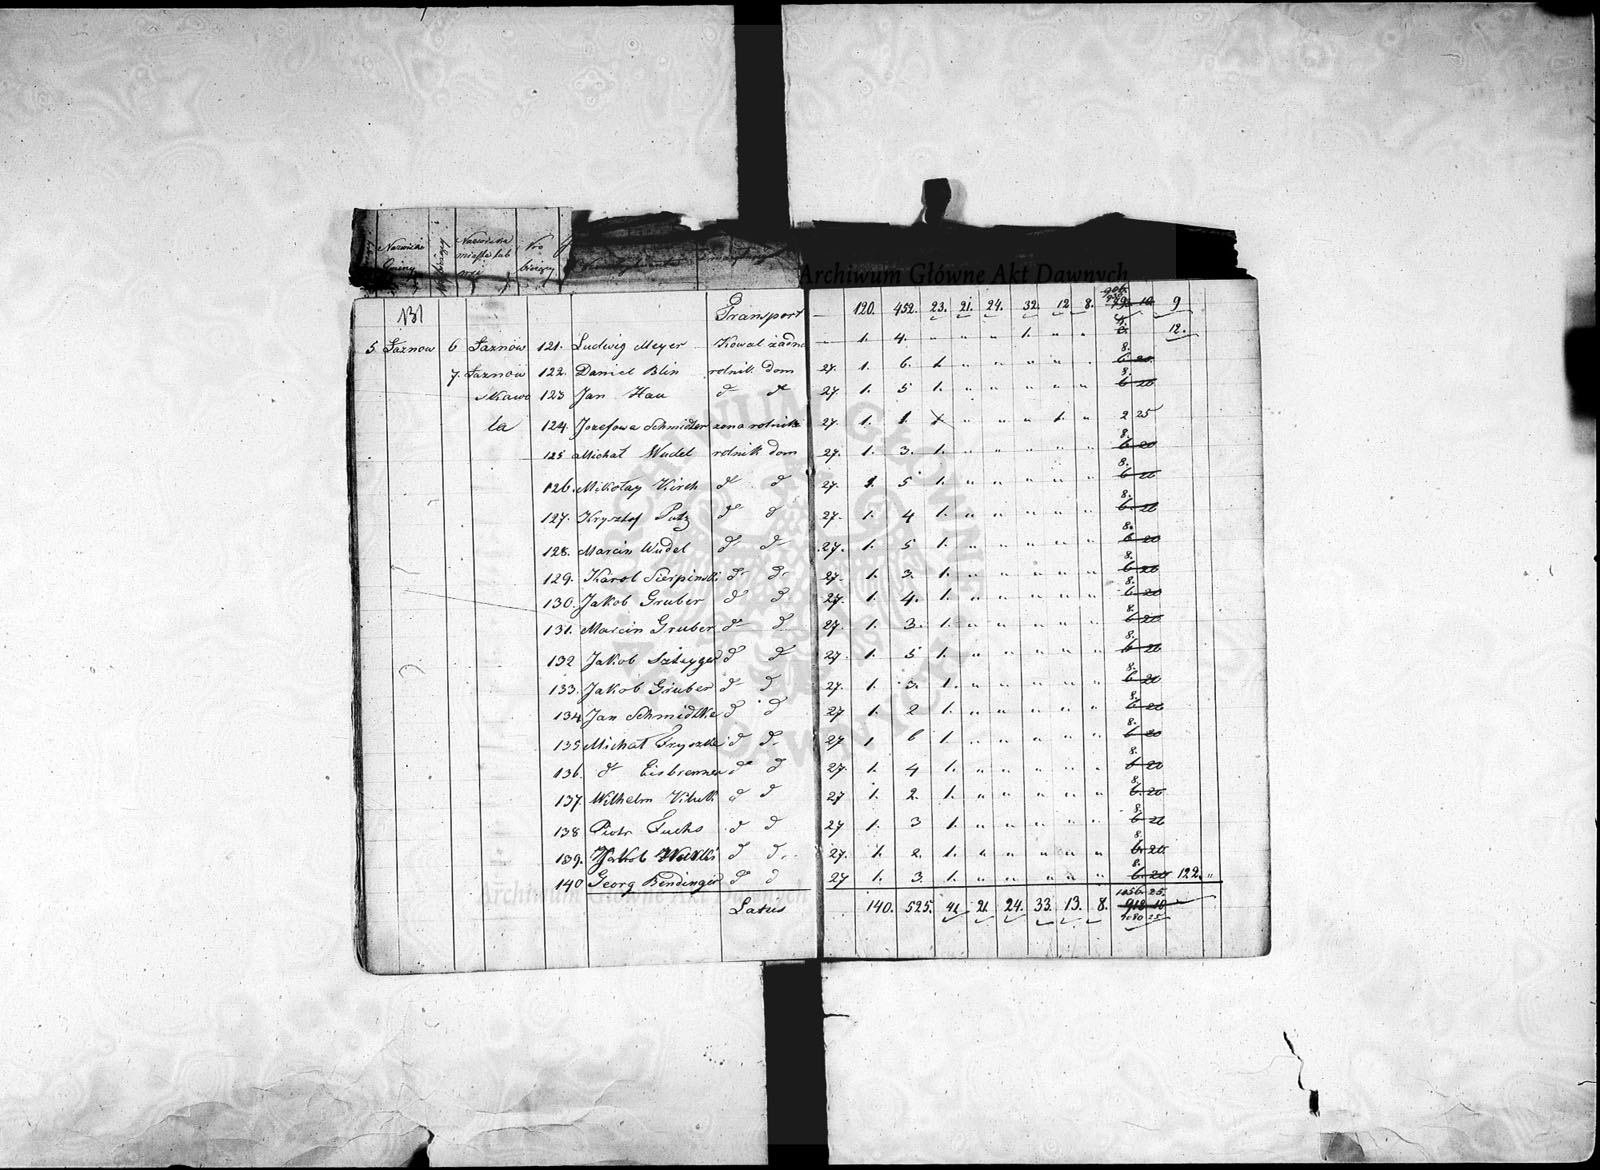 Nazwisko Gminy Nazwisko miasta lub wsi No bieżący
Archiwum Główne Akt Dawnych
131
Transport — 120. 452. 23. 21. 24. 32. 12 8. 10 9
5 Łaznow 6 Łaznów 121. Ludwig Meyer Kowal żadn „ 1. 4. „ „ „ 1. „ „ 4. 12.
7. Łaznow 122. Daniel Blin rolnik dom 27. 1. 6. 1. „ „ „ „ „ 8. 6 20
skawo 123 Jan Hau d d 27. 1. 5 1. „ „ „ „ „ 8. 6 20
la 124. Jozefowa Schmidler zona rolnik 27. 1. 1. „ „ „ 1. „ 2 25
125 Michał Wudel rolnik dom 27. 1. 3. 1. „ „ „ „ „ 8. 6 20
126. Mikołay Kirch d d 27. 1. 5 1. „ „ „ „ „ 8. 6 20
127. Krysztof Putz d d 27. 1. 4 1. „ „ „ „ „ 8. 6 20
128. Marcin Wudel d d 27. 1. 5 1. „ „ „ „ „ 8. 6 20
129. Karol Sierpinski d d 27. 1. 3. 1. „ „ „ „ „ 8. 6 20
130. Jakob Gruber d d 27. 1. 4. 1. „ „ „ „ „ 8. 6 20
131. Marcin Gruber d d 27. 1. 3. 1. „ „ „ „ „ 8. 6 20
132 Jakob Szteyger d d 27. 1. 5 1. „ „ „ „ „ 8. 6 20
133. Jakob Gruber d d 27. 1. 3. 1. „ „ „ „ „ 8. 6 20
134 Jan Schmidtke d d 27 1. 2 1. „ „ „ „ „ 8. 6 20
135 Michał Fryszke d d 27 1 6 1. „ „ „ „ „ 8. 6 20
136. d Eisbrenner d d 27. 1. 4 1. „ „ „ „ „ 8. 6 20
137. Wilhelm d d 27 1. 2. 1. „ „ „ „ „ 8. 6. 20
138 Piotr Fuchs d d 27 1. 3 1. „ „ „ „ „ 8. 6 20
139. Jakob d d 27. 1. 2. 1. „ „ „ „ „ 8. 6. 20
140 Georg Bendinger d d 27 1. 3. 1. „ „ „ „ „ 8. 6. 20 122. „
Archiwum Główne Akt Dawnych
1056. 25.
Latus 140. 525. 41. 21. 24. 33. 13. 8. 918 10
1080 25